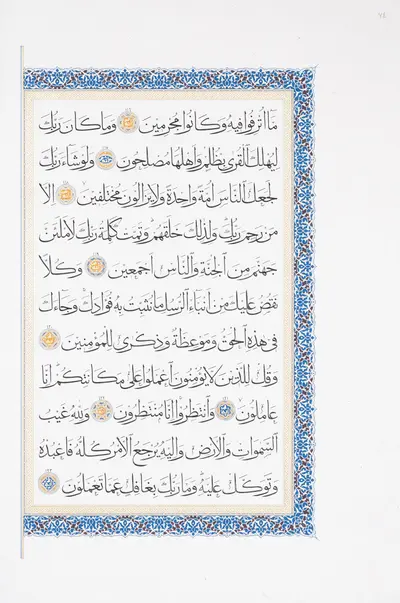 مَا أُتْرِفُوا فِيهِ وَكَانُوا مُجْرِمِينَ وَمَا كَانَ رَبُّكَ
لِيُهْلِكَ ٱلْقُرَىٰ بِظُلْمٍ وَأَهْلُهَا مُصْلِحُونَ وَلَوْ شَاءَ رَبُّكَ
لَجَعَلَ ٱلنَّاسَ أُمَّةً وَاحِدَةً وَلَا يَزَالُونَ مُخْتَلِفِينَ إِلَّا
مَن رَحِمَ رَبُّكَ وَلِذَٰلِكَ خَلَقَهُمْ وَتَمَّتْ كَلِمَةُ رَبِّكَ لَأَمْلَأَنَّ
جَهَنَّمَ مِنَ ٱلْجِنَّةِ وَٱلنَّاسِ أَجْمَعِينَ وَكُلًّا
نَقُصُّ عَلَيْكَ مِنْ أَنْبَاءِ ٱلرُّسُلِ مَا نُثَبِّتُ بِهِ فُؤَادَكَ وَجَاءَكَ
فِي هَٰذِهِ ٱلْحَقُّ وَمَوْعِظَةٌ وَذِكْرَىٰ لِلْمُؤْمِنِينَ
وَقُل لِلَّذِينَ لَا يُؤْمِنُونَ ٱعْمَلُوا عَلَىٰ مَكَانَتِكُمْ إِنَّا
عَامِلُونَ وَٱنْتَظِرُوا إِنَّا مُنْتَظِرُونَ وَلِلَّهِ غَيْبُ
ٱلسَّمٰوَاتِ وَٱلْأَرْضِ وَإِلَيْهِ يُرْجَعُ ٱلْأَمْرُ كُلُّهُ فَٱعْبُدْهُ
وَتَوَكَّلْ عَلَيْهِ وَمَا رَبُّكَ بِغَافِلٍ عَمَّا تَعْمَلُونَ